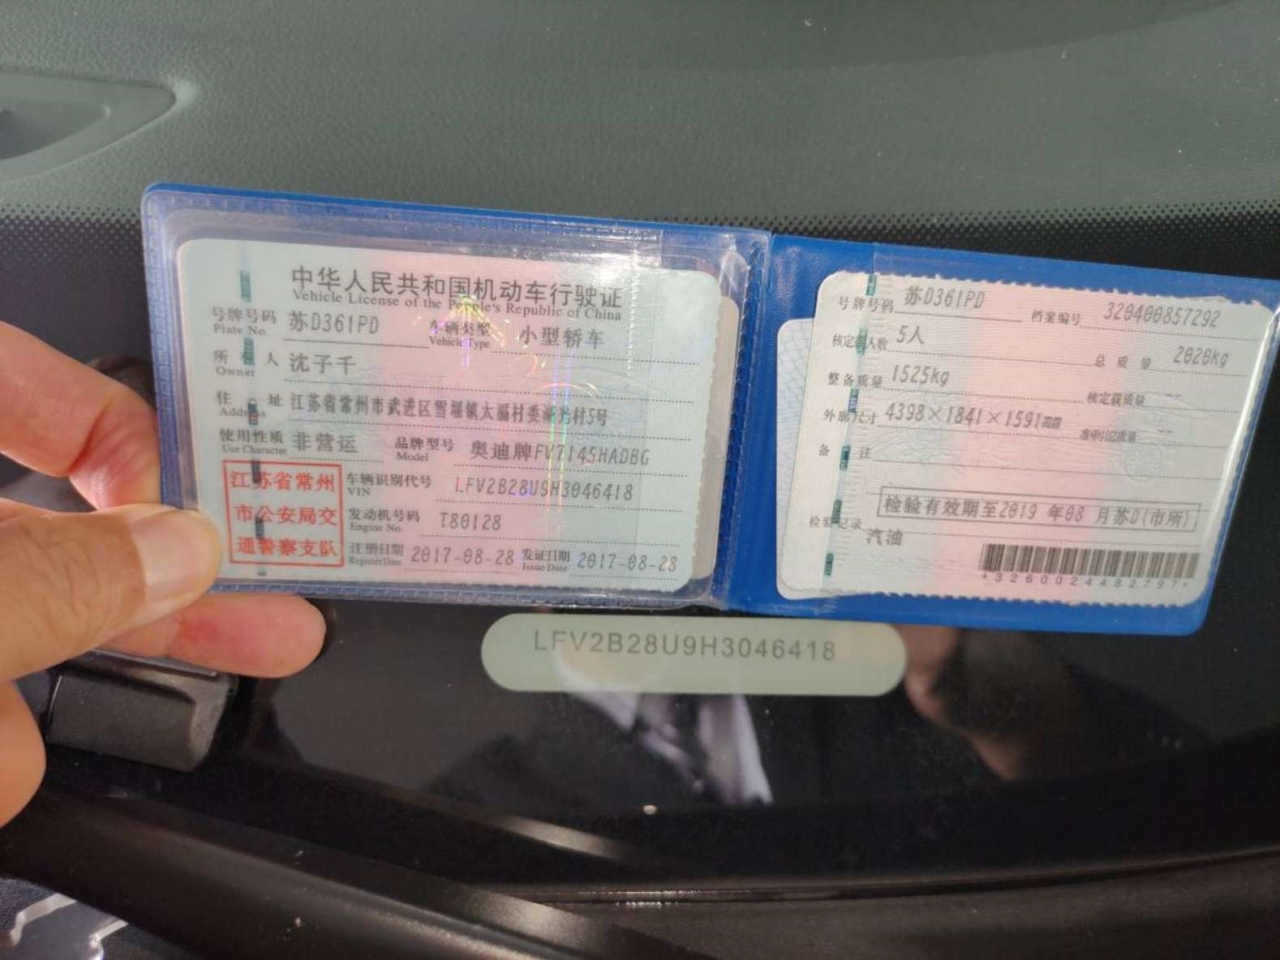 中华人民共和国机动车行驶证
Vehicle License of the People's Republic of China
号牌号码 苏D361PD 车辆类型 小型轿车
Plate No. Vehicle Type
所有人 沈子千
Owner
住址 江苏省常州市武进区雪堰镇太滆村委 5号
Address
使用性质 非营运 品牌型号 奥迪牌FV7145HADBG
Use Character Model
江苏省常州
市公安局交
通警察支队
车辆识别代号 LFV2B28U9H3046418
VIN
发动机号码 T80128
Engine No.
注册日期 2017-08-28 发证日期 2017-08-28
Register Date Issue Date
号牌号码 苏D361PD 档案编号 320400857292
核定载人数 5人 总质量 2020kg
整备质量 1525kg 核定载质量 --
外廓尺寸 4398×1841×1591mm 准牵引总质量 --
备注
检验有效期至2019年08月苏D(市所)
检验记录
汽油
*3260024482797*
LFV2B28U9H3046418